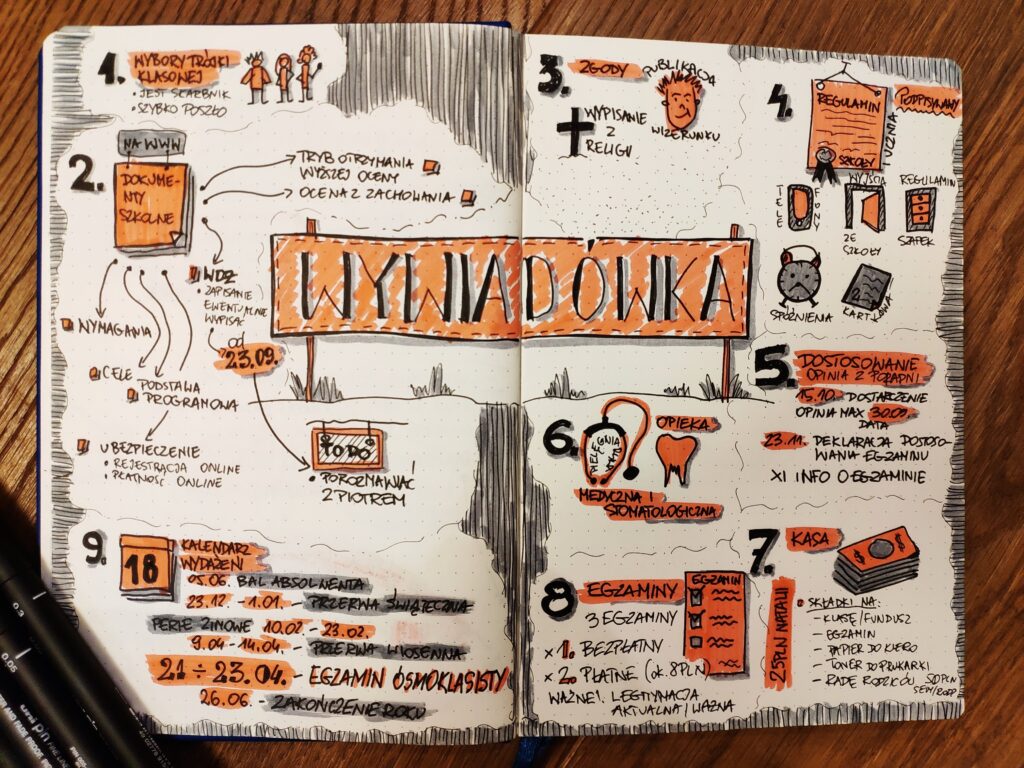 1. WYBORY TRÓJKI
KLASOWEJ
• JEST SKARBNIK
• SZYBKO POSZŁO
2.
NA WWW
DOKUME-
NTY
SZKOLNE
TRYB OTRZYMANIA
WYŻSZEJ OCENY
OCENA Z ZACHOWANIA
WDŻ
• ZAPISANIE
EWENTUALNIE
WYPISAĆ
od
23.09.
WYMAGANIA
CELE
PODSTAWA
PROGRAMOWA
UBEZPIECZENIE
• REJESTRACJA ONLINE
• PŁATNOŚĆ ONLINE
TO DO
• POROZMAWIAĆ
Z PIOTREM
WYWIADÓWKA
3. ZGODY
PUBLIKACJA
WIZERUNKU
WYPISANIE
Z
RELIGII
4.
REGULAMIN
SZKOŁY
PODPISYWANY
UCZNIA
TELE
FONY
WYJŚCIA
ZE
SZKOŁY
REGULAMIN
SZAFEK
SPÓŹNIENIA
KARTKÓWKA
5. DOSTOSOWANIE
OPINIA Z PORADNI
15.10. DOSTARCZENIE
OPINIA MAX 30.09.
DATA
23.11. DEKLARACJA DOSTOSO-
WANIA EGZAMINU
XI INFO O EGZAMINIE
6.
OPIEKA
MEDYCZNA I
STOMATOLOGICZNA
7. KASA
25PLN NATALII
• SKŁADKI NA:
- KLASĘ/FUNDUSZ
- EGZAMIN
- PAPIER DO KSERO
- TONER DO DRUKARKI
- RADĘ RODZICÓW 50PLN
8 EGZAMINY
EGZAMIN
3 EGZAMINY
× 1. BEZPŁATNY
× 2. PŁATNE (ok. 8PLN)
WAŻNE! LEGITYMACJA
AKTUALNA I WAŻNA
9.
18
KALENDARZ
WYDAŻEŃ
05.06. BAL ABSOLWENTA
23.12. - 1.01. - PRZERWA ŚWIĄTECZNA
FERIE ZIMOWE 10.02. - 23.02.
9.04 - 14.04. - PRZERWA WIOSENNA
21 ÷ 23.04. - EGZAMIN ÓSMOKLASISTY
26.06. - ZAKOŃCZENIE ROKU
0.3
0.05
uni pin FINE LINE